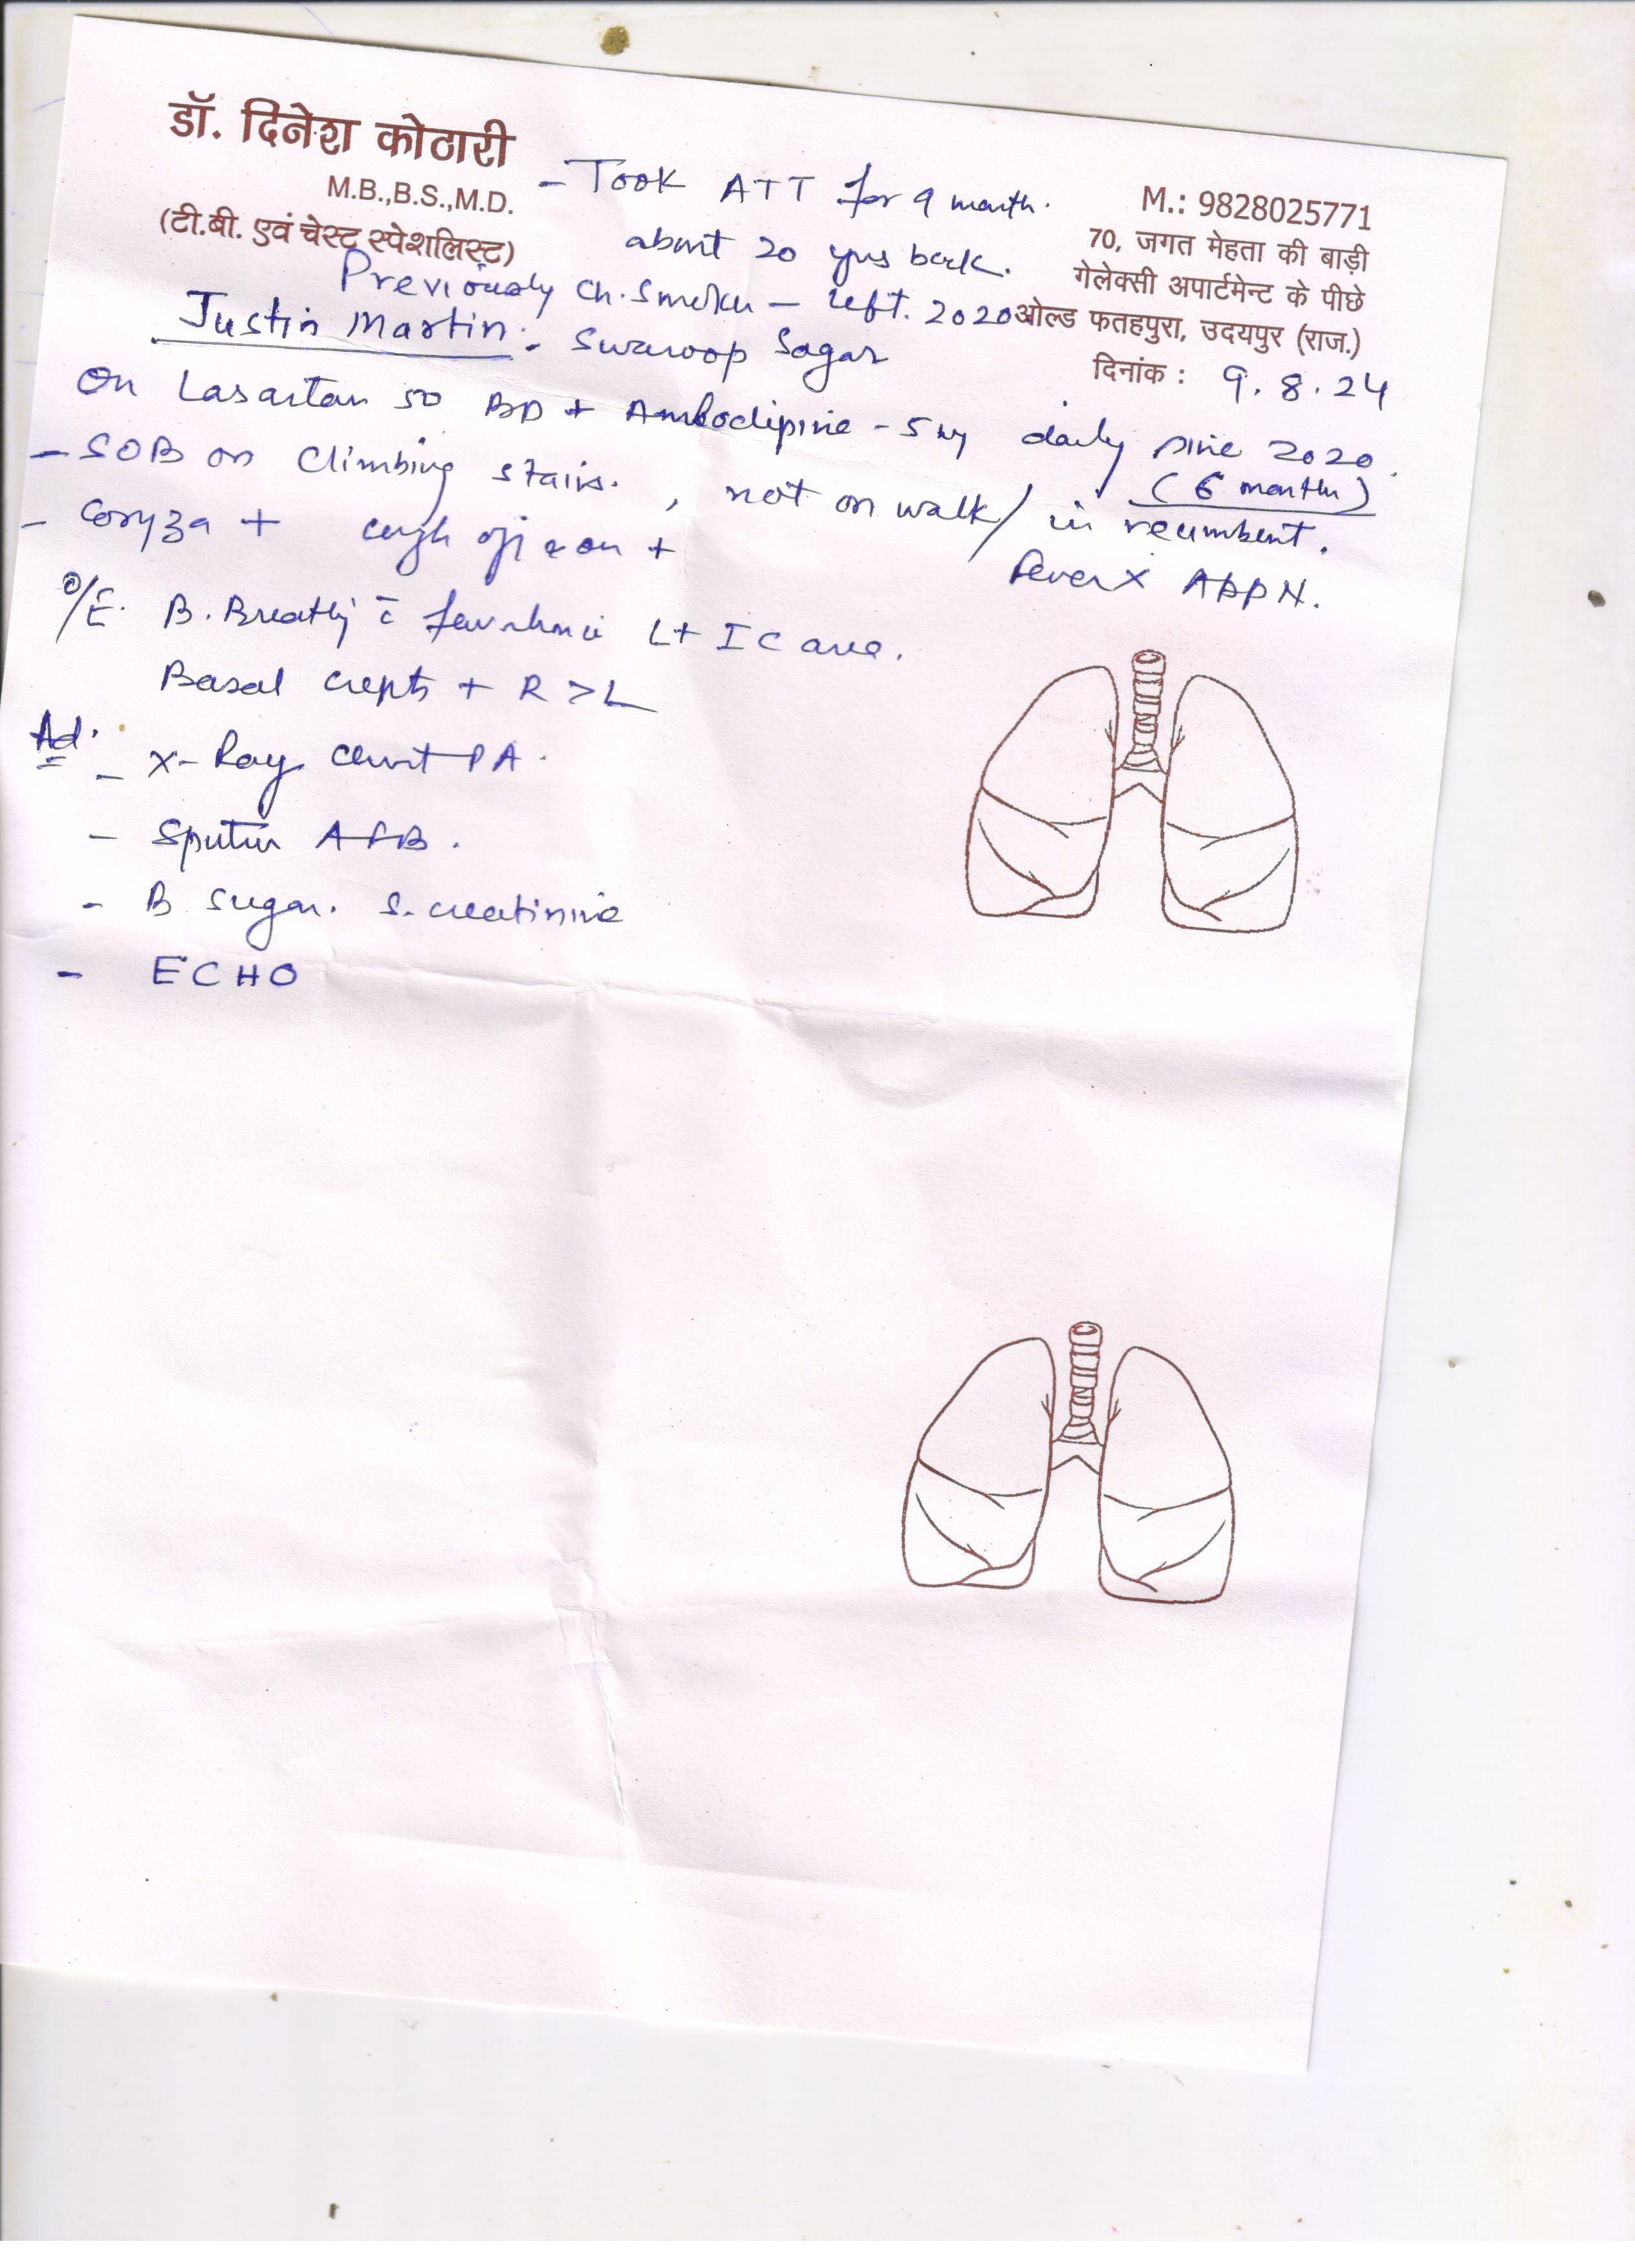 डॉ. दिनेश कोठारी
M.B.,B.S.,M.D.
(टी.बी. एवं चेस्ट स्पेशलिस्ट)
M.: 9828025771
70, जगत मेहता की बाड़ी
गेलेक्सी अपार्टमेन्ट के पीछे
ओल्ड फतहपुरा, उदयपुर (राज.)
दिनांक : 9.8.24
- Took ATT for 9 month.
about 20 yrs back.
Previously Ch. Smoker - left. 2020
Justin Martin. Swaroop Sagar
On Lasartan 50 BD + Ambodipine - 5 mg daily since 2020.
- SOB on Climbing stairs. , not on walk / in recumbent.
(6 months)
- Coryza + cough off & on +
Fever X APPN.
O/E. B. Breathing c̄ Lt IC area.
Basal crepts + R > L
Ad.
- X-Ray Chest PA.
- Sputum AFB.
- B sugar. S. creatinine
- ECHO